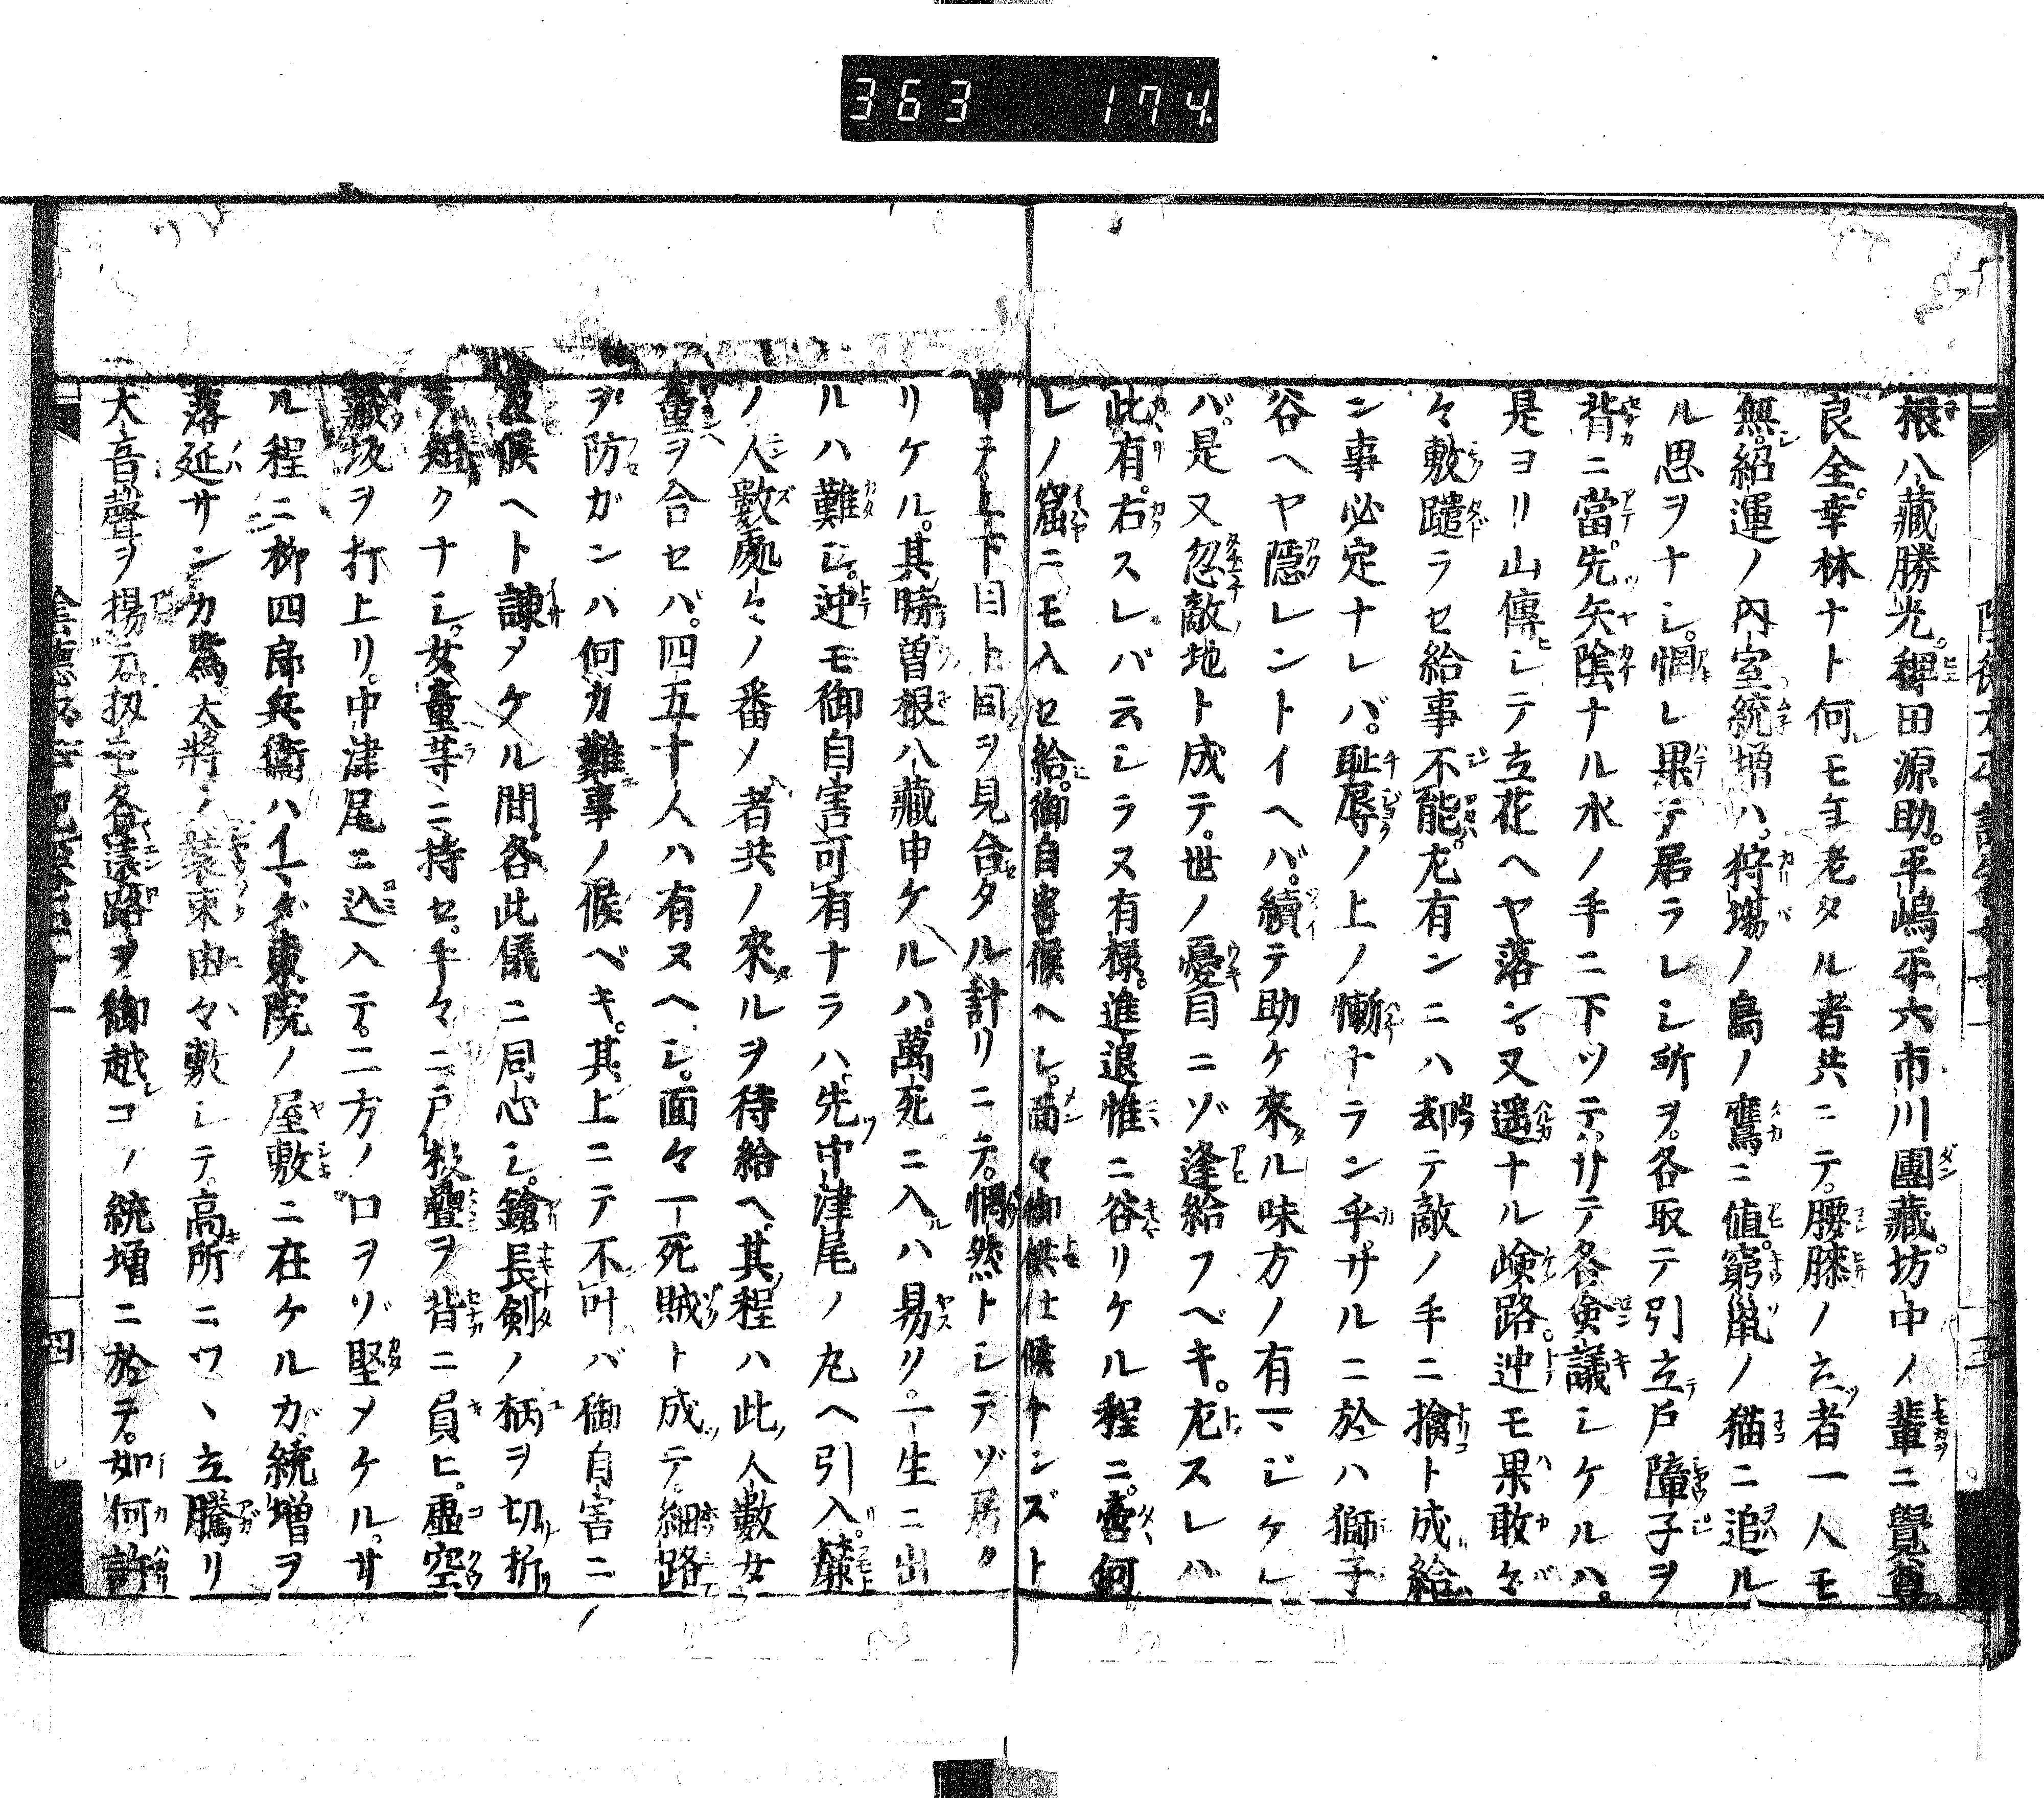 363 174
根八藏勝光。稗田源助。平嶋平六市川團藏。坊中ノ輩ニ覺尊
良全。幸林ナト何レモ老タル者共ニテ。腰膝ノ立者一人モ
無。紹運ノ内室統増ハ。狩場ノ鳥ノ鷹ニ値。窮鼠ノ猫ニ追ル
ル思ヲナシ。惘レ果テ居ラレシ所ヲ。各取テ引立戸障子ヲ
背ニ當。先矢陰ナル水ノ手ニ下ツテ。サテ各僉議シケルハ。
是ヨリ山傳シテ立花ヘヤ落ン。又遥ナル嶮路。迚モ果敢々
々敷躚ラセ給事不能。左有ンニハ却テ敵ノ手ニ擒ト成給
ン事必定ナレバ。耻辱ノ上ノ慚ナラン乎。サルニ於ハ獅子
谷ヘヤ隱レントイヘバ。續テ助ケ來ル味方ノ有マジケレ
バ。是又忽敵地ト成テ。世ノ憂目ニゾ逢給フベキ。左スレハ
此有。右スレバ云シラヌ有様。進退惟ニ谷リケル程ニ。啻何
レノ窟ニモ入セ給。御自害候ヘシ。面々御供仕候ハンズト
申テ。上下目ト目ヲ見合タル計リニテ。惘然トシテゾ居タ
リケル。其時曽根八藏申ケルハ。萬死ニ入ハ易リ。一生ニ出
ルハ難シ。迚モ御自害可有ナラハ。先中津尾ノ丸ヘ引入。麓
ノ人數處々ノ番ノ者共ノ來ルヲ待給ヘ。其程ハ此人數女
童ヲ合セバ。四五十人ハ有ヌヘシ。面々一死賊ト成テ。細路
ヲ防ガンハ何カ難事ノ候ベキ。其上ニテ不叶バ御自害ニ
及候ヘト諫メケル間。各此儀ニ同心シ。鎗長劍ノ柄ヲ切折
テ短クナシ。女童等ニ持セ。手々ニ戸板疊ヲ背ニ負ヒ。虚空
藏坂ヲ打上リ。中津尾ニ込入テ。二方ノ口ヲゾ堅メケル。サ
ル程ニ柳四郎兵衞ハイマダ東院ノ屋敷ニ在ケルカ。統増ヲ
落延サンカ爲大將ノ裝束由々敷シテ。高所ニツヽ立騰リ
大音聲ヲ揚テ。扨モ各遠路ヲ御越シコノ統増ニ於テ。如何許